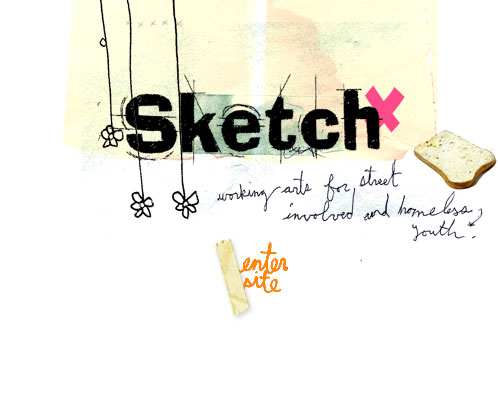 Sketch
working arts for street
involved and homeless
youth.
enter
site